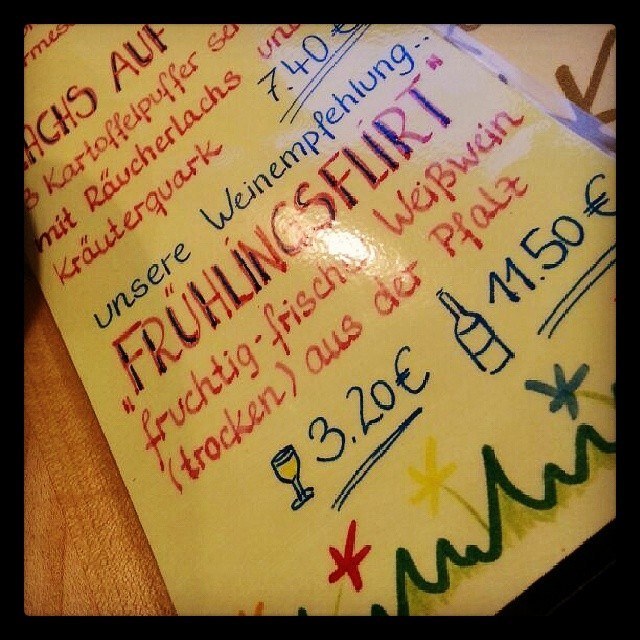 LACHS AUF
3 Kartoffelpuffer
mit Räucherlachs und
Kräuterquark
7.40 €
unsere Weinempfehlung..
"FRÜHLINGSFLIRT"
fruchtig-frischer Weißwein
(trocken) aus der Pfalz
3.20 €
11.50 €